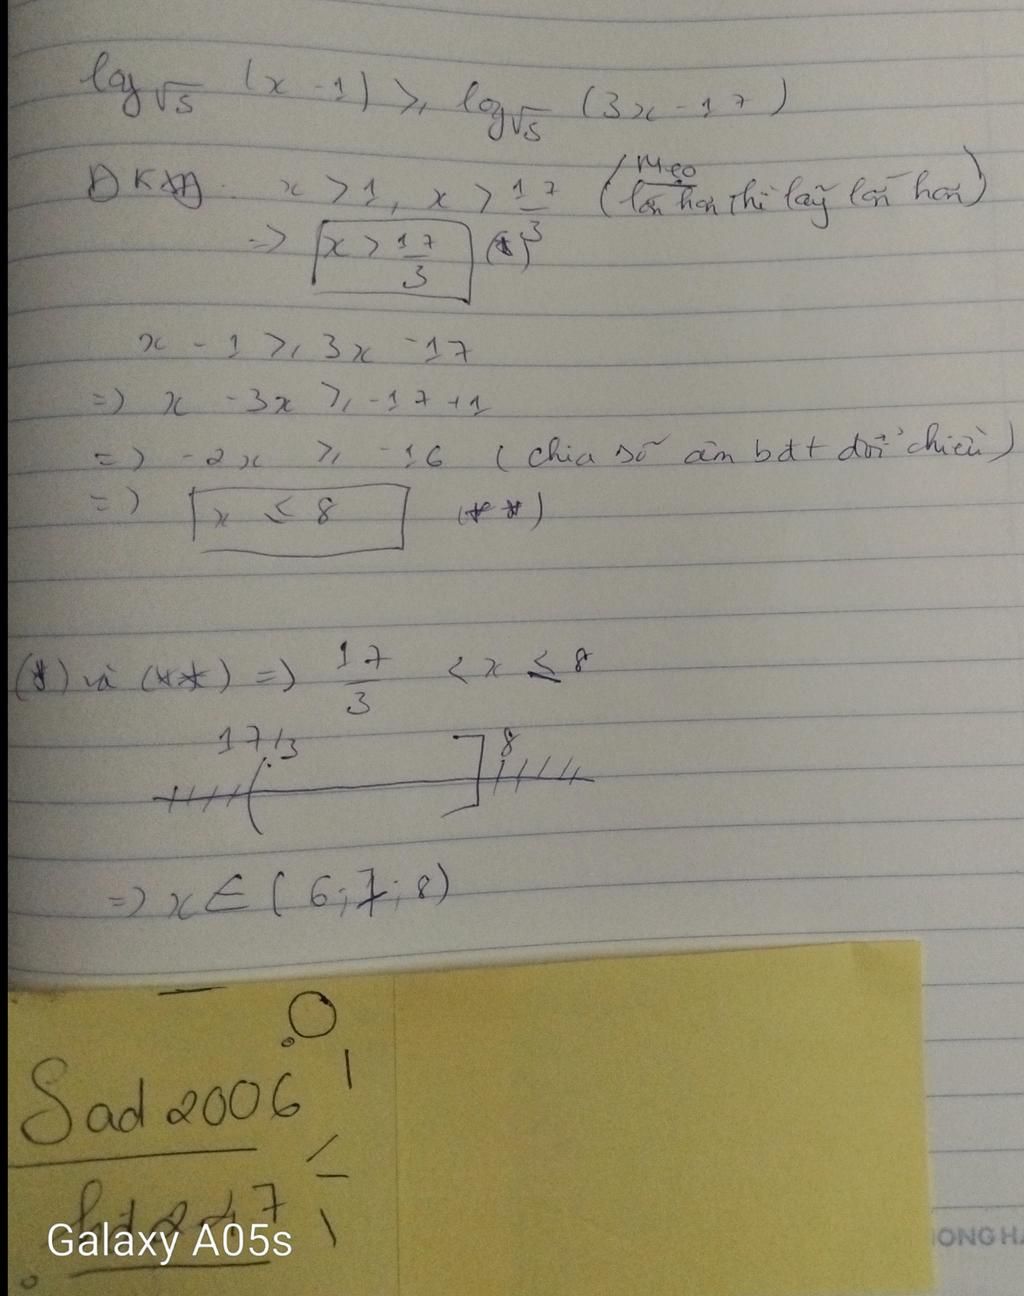 log√5 (x - 1) ≥ log√5 (3x - 17)
ĐKXĐ: x > 1, x > 17/3 (Mẹo lớn hơn thì lấy lớn hơn)
=> x > 17/3 (*)
x - 1 ≥ 3x - 17
=> x - 3x ≥ -17 + 1
=> -2x ≥ -16 (chia số âm bđt đổi chiều)
=> x ≤ 8 (**)
(*) và (**) => 17/3 < x ≤ 8
17/3 8
=> x ∈ (6; 7; 8)
Sad 2006
Galaxy A05s
ONG HA